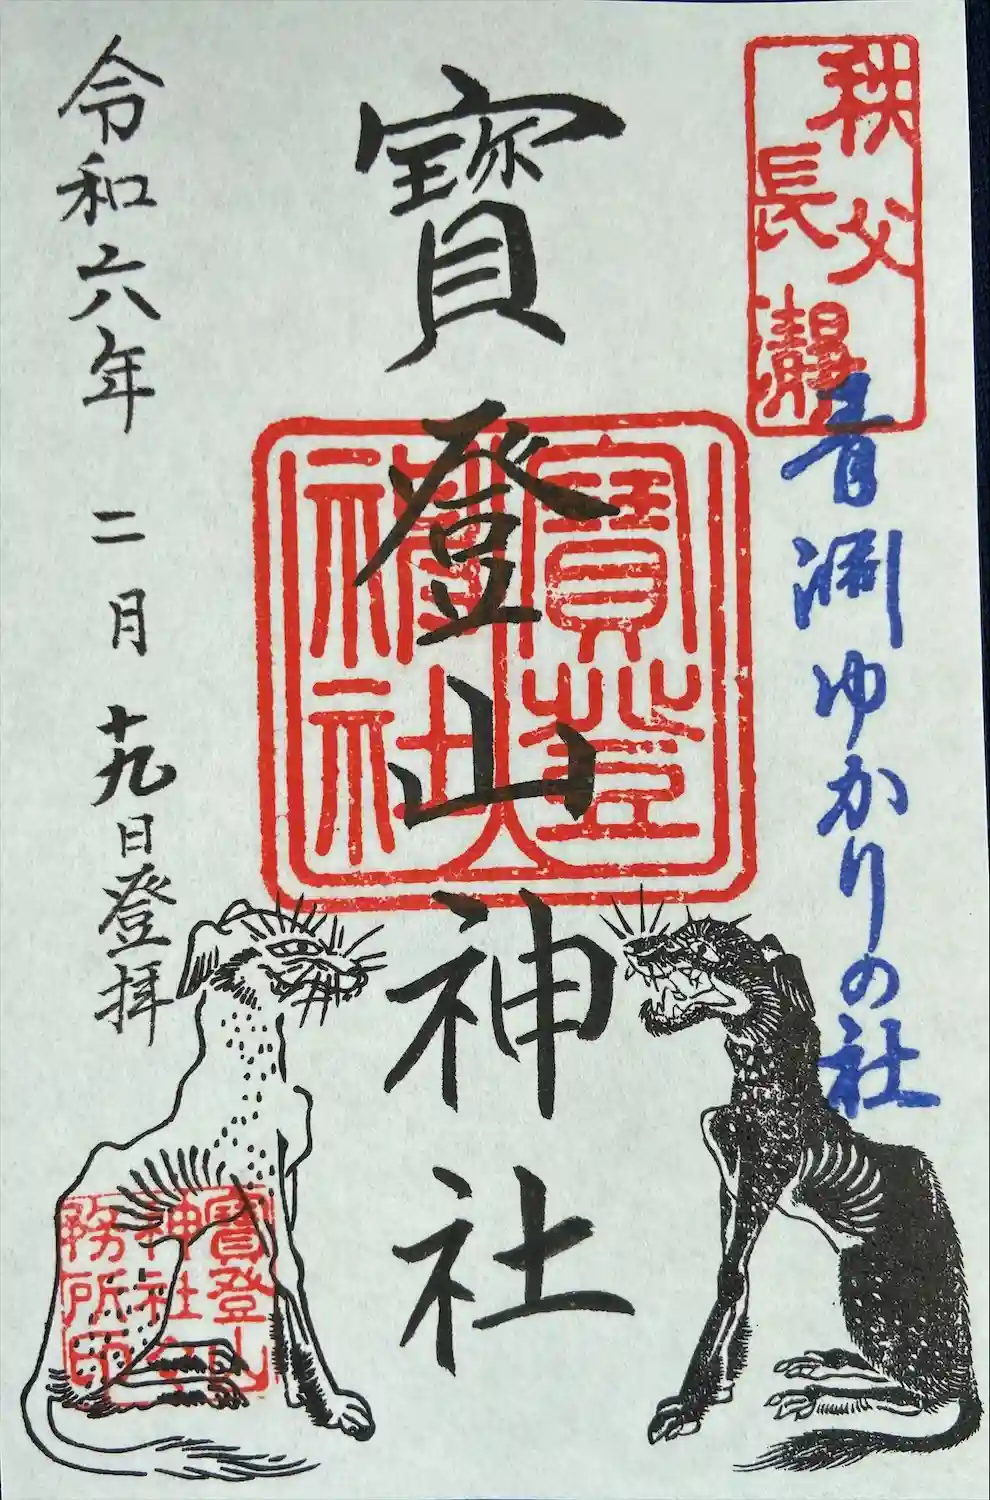 秩父
長瀞
青淵ゆかりの社
寳登山神社
寳登山
神社
令和六年 二月 十九日登拝
寳登山
神社
務所印